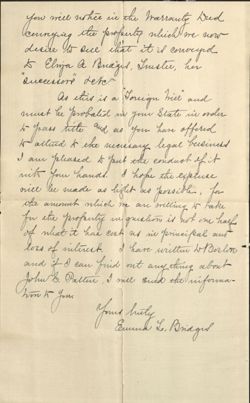 you will notice in the Warranty Deed
conveying the property which we now
desire to sell that it is conveyed
to Eliza A Bridges, Trustee, her
"successors" &etc"
As this is a "Foreign Will" and
must be probated in your State in order
to pass title and as you have offered
to attend to the necessary legal business
I am pleased to put the conduct of it
into your hands. I hope the expense
will be made as light as possible, for
the amount which we are willing to take
for the property in question is not one half
of what it has cost us in principal and
loss of interest. I have written to Boston
and if I can find out anything about
John E. I will send the informa-
tion to you
Yours truly
Emma L. Bridges